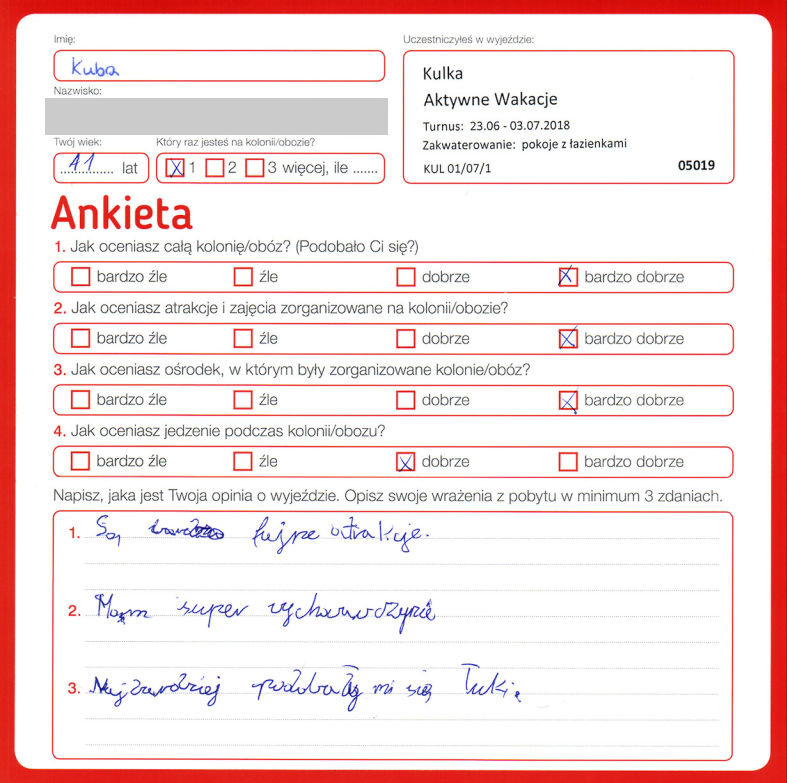 Imię:
Uczestniczyłeś w wyjeździe:
Kuba
Kulka
Aktywne Wakacje
Turnus: 23.06 - 03.07.2018
Zakwaterowanie: pokoje z łazienkami
KUL 01/07/1
05019
Nazwisko:
Twój wiek:
Który raz jesteś na kolonii/obozie?
11 lat
X 1 2 3 więcej, ile .......
Ankieta
1. Jak oceniasz całą kolonię/obóz? (Podobało Ci się?)
bardzo źle źle dobrze X bardzo dobrze
2. Jak oceniasz atrakcje i zajęcia zorganizowane na kolonii/obozie?
bardzo źle źle dobrze X bardzo dobrze
3. Jak oceniasz ośrodek, w którym były zorganizowane kolonie/obóz?
bardzo źle źle dobrze X bardzo dobrze
4. Jak oceniasz jedzenie podczas kolonii/obozu?
bardzo źle źle X dobrze bardzo dobrze
Napisz, jaka jest Twoja opinia o wyjeździe. Opisz swoje wrażenia z pobytu w minimum 3 zdaniach.
1. Są fajne atrakcje.
2. Mam super wychowawczynie
3. Najbardziej podobały mi się